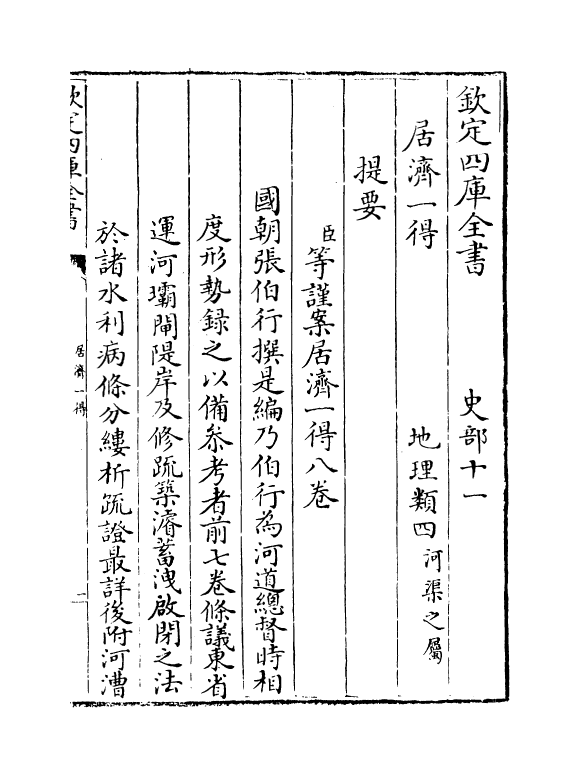 欽定四庫全書 史部十一
居濟一得 地理類四河渠之屬
提要
臣等謹案居濟一得八卷
國朝張伯行撰是編乃伯行為河道總督時相
度形勢録之以備叅考者前七卷條議東省
運河壩閘隄岸及修疏築濬蓄洩啟閉之法
於諸水利病條分縷析疏證最詳後附河漕
欽定四庫全書
居濟一得